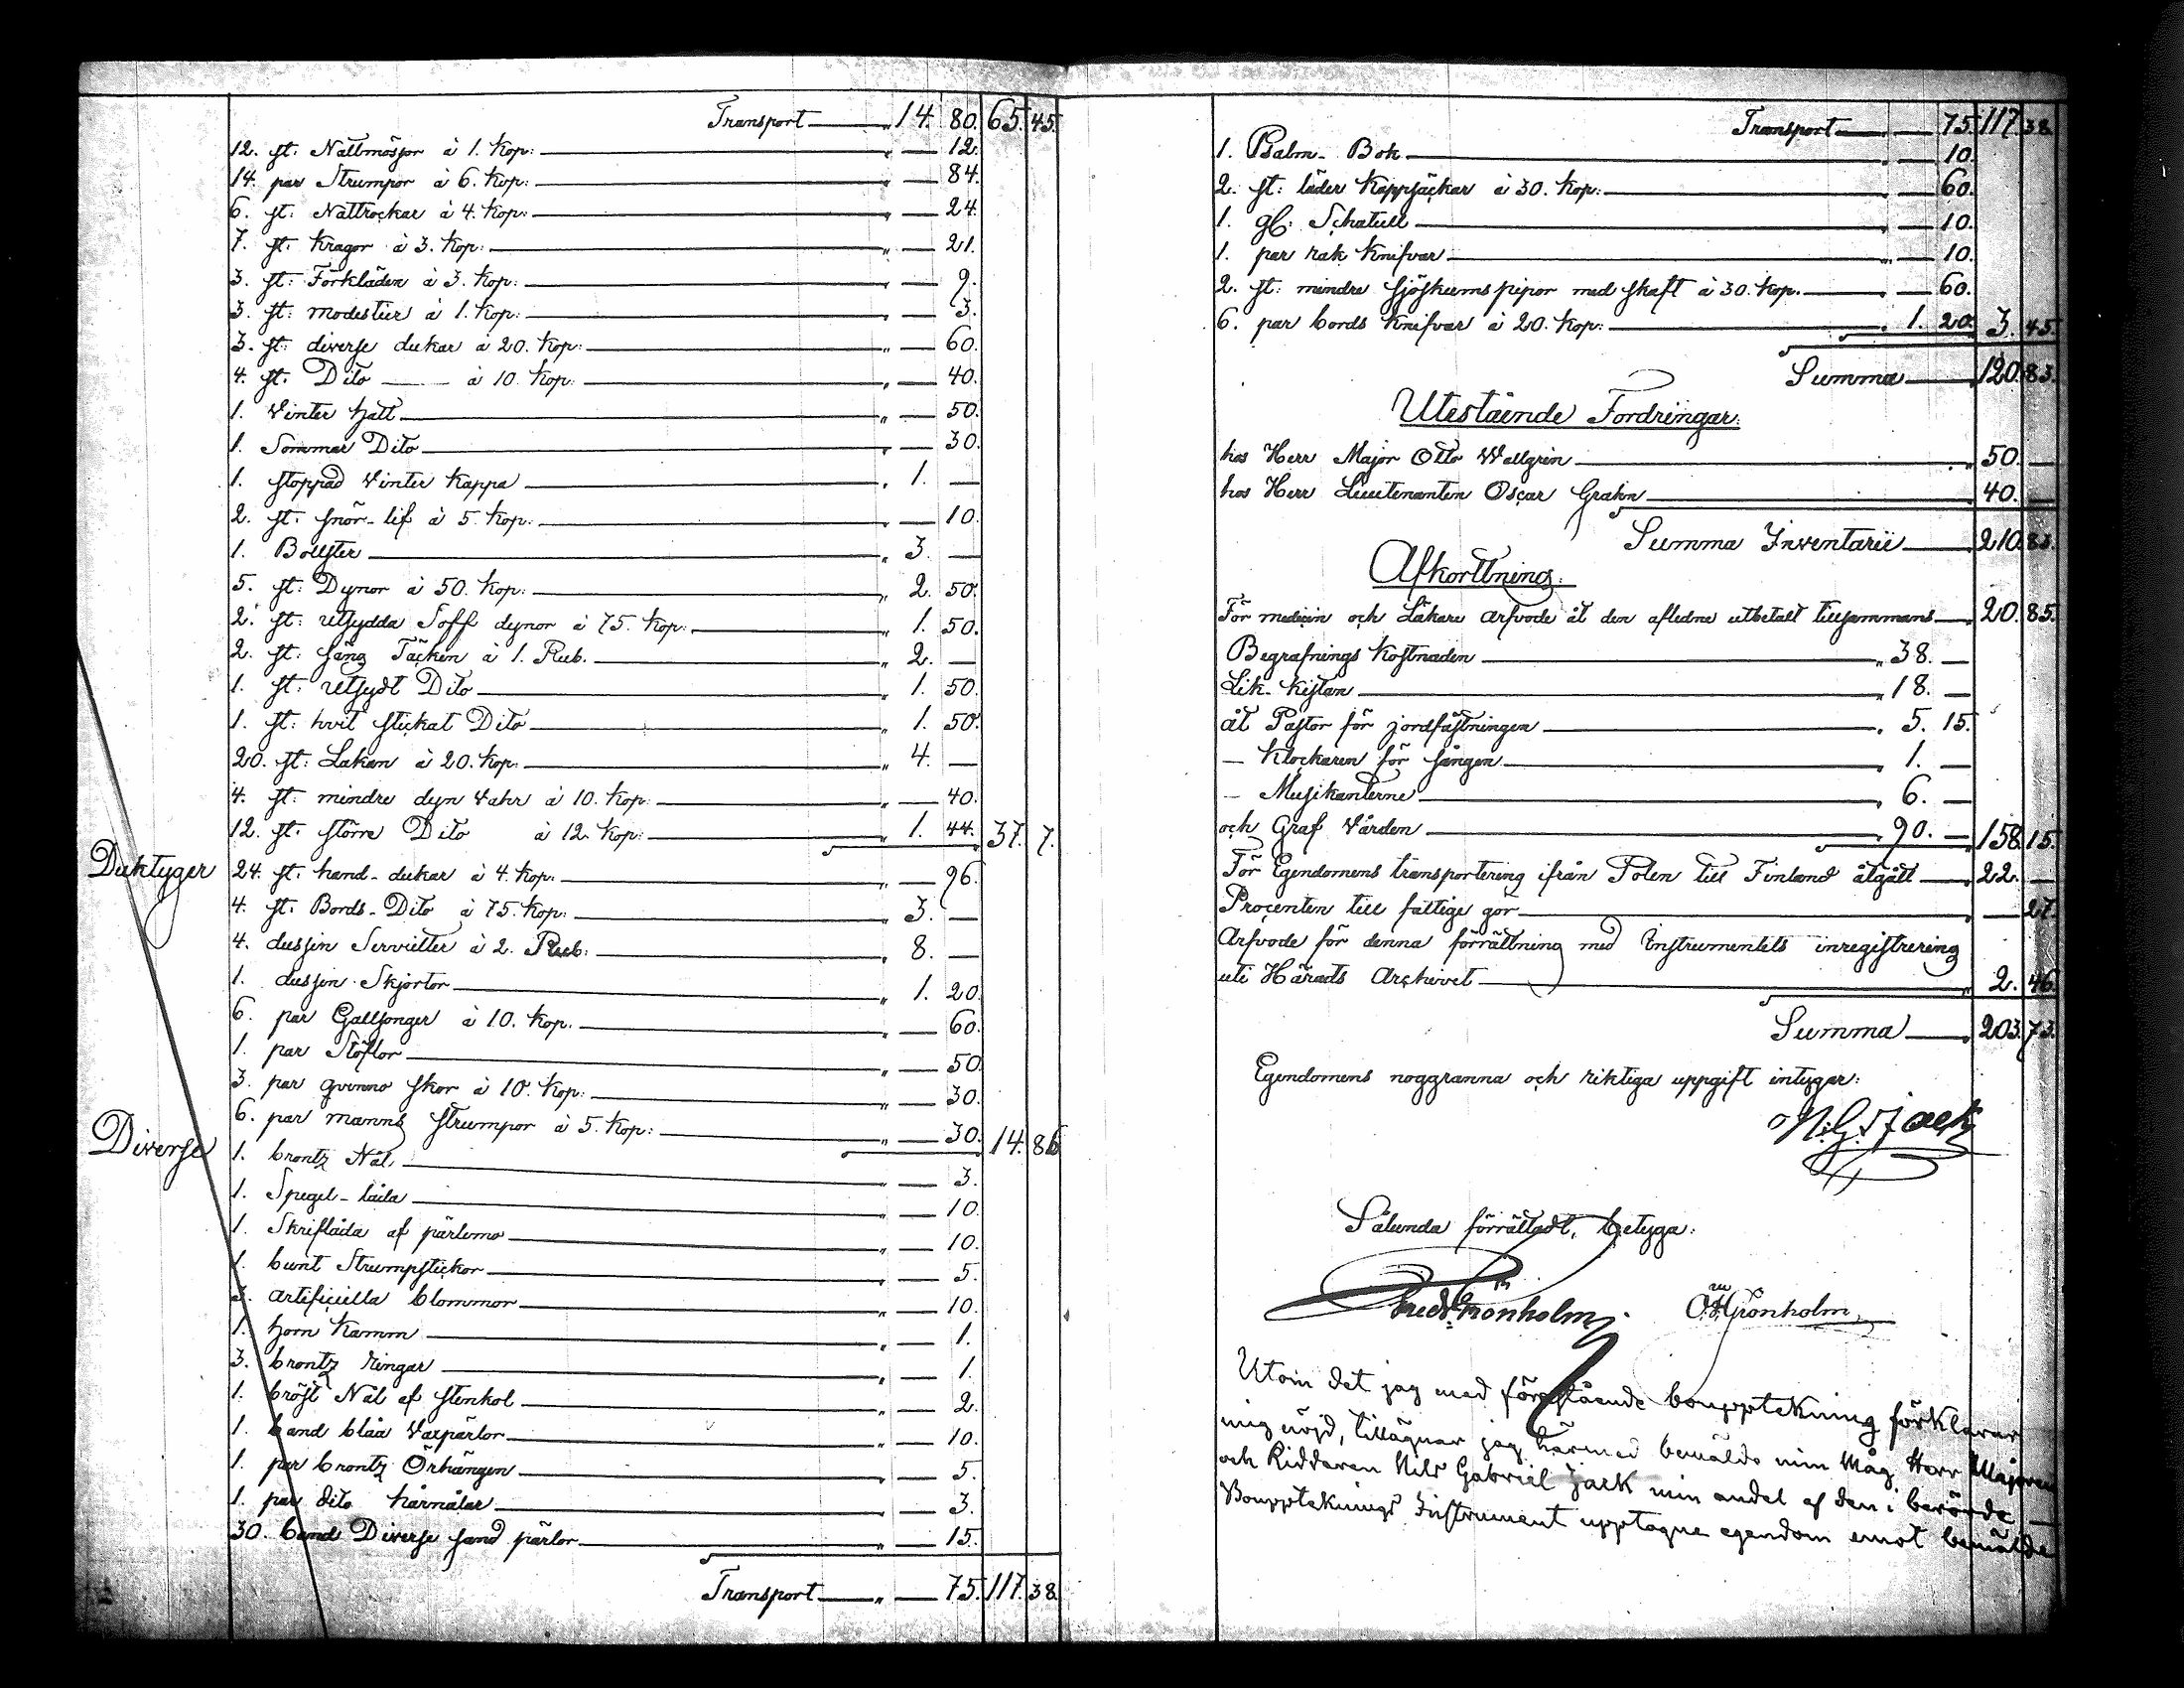 Transport — „ 14. 80. 65. 45.
12. st: Nattmössor à 1. Kop: — „ — 12.
14. par Strumpor à 6. Kop: — „ — 84.
6. st: Nattrockar à 4. Kop: — „ — 24.
7. st: Kragor à 3. Kop: — „ — 21.
3. st: Förkläden à 3. Kop: — „ — 9.
3. st: modestier à 1. Kop: — „ — 3.
3. st: diverse dukar à 20. Kop: — „ — 60.
4. st. Dito — à 10. Kop: — „ — 40.
1. Winter hatt — „ — 50.
1. Sommar Dito — „ — 30.
1. stoppad Winter Kappa — „ 1. —
2. st: snör-lif à 5. Kop: — „ — 10.
1. Bolster — „ 3. —
5. st: Dynor à 50. Kop: — „ 2. 50.
2. st: utsydda Soff dynor à 75. Kop: — „ 1. 50.
2. st: säng Täcken à 1. Rub. — „ 2. —
1. st: utsydt Dito — „ 1. 50.
1. st: hvit stickat Dito — „ 1. 50.
20. st: Lakan à 20. Kop: — „ 4. —
4. st: mindre dyn Wahr à 10. Kop: — „ — 40.
12. st: större Dito à 12. Kop: — „ 1. 44. 37. 7.
Duktyger 24. st: hand-dukar à 4. Kop: — „ — 96.
4. st: Bords-Dito à 75. Kop: — „ 3. —
4. dussin Servietter à 2. Rub: — „ 8. —
1. dussin Skjortor — „ 1. 20.
6. par Gallsonger à 10. Kop. — „ — 60.
1. par Stöflor — „ — 50.
3. par qvinno skor à 10. Kop: — „ — 30.
6. par manns strumpor à 5. Kop: — „ — 30. 14. 86
Diverse 1. brontz Nål — „ — 3.
1. Spegel-låda — „ — 10.
1. Skriflåda af pärlemo — „ — 10.
1. bunt Strumpstickor — „ — 5.
3. artificiella blommor — „ — 10.
1. horn Kamm — „ — 1.
3. brontz ringar — „ — 1.
1. bröst Nål af stenkol — „ — 2.
1. band blåa Waxpärlor — „ — 10.
1. par brontz Örhängen — „ — 5.
1. par dito hårnålar — „ — 3.
30. band Diverse sand pärlor — „ — 15.
Transport — „ — 75. 117. 38.
Transport — „ — 75. 117. 38.
1. Psalm-Bok — „ — 10.
2. st: läder Kappsäckar à 30. Kop: — „ — 60.
1. gl: Schatull — „ — 10.
1. par rak Knifvar — „ — 10.
2. st: mindre sjöskums pipor med skaft à 30. Kop. — „ — 60.
6. par bords Knifvar à 20. Kop: — „ 1. 20. 3. 45.
Summa — „ 120. 83.
Utestående Fordringar:
hos Herr Major Otto Wallgrén — „ 50. —
hos Herr Lieutenanten Oscar Grahn — „ 40. —
Summa Inventarii — „ 210. 83.
Afkorttning:
För medicin och Läkare arfvode åt den aflednе utbetalt tillsammans — „ 20. 85.
Begrafnings Kostnaden — „ 38. —
Lik-Kistan — „ 18. —
åt Pastor för jordfästningen — „ 5. 15.
— Klockaren för sången — „ 1. —
— Musikanterne — „ 6. —
och Graf Vården — „ 90. — 158. 15.
För Egendomens transportering ifrån Polen till Finland åtgått — 22. —
Procenten till fattige gör — „ — 27.
Arfvode för denna förrättning med Instrumentets inregistrering
uti Härads Archivet — „ 2. 46.
Summa — „ 203. 73.
Egendomens noggranna och riktiga uppgift intygar:
N. G. Jack
Sålunda förrättadt, betyga:
Fredr. Grönholm. O. W. Grönholm
Utom det jag med förestående bouppteckning förklarar
mig nöjd, tillägnar jag härmed bemälde min Måg Herr Majoren
och Riddaren Nils Gabriel Jack min andel af den i berörde —
Bouppteknings Instrument upptagne egendom emot bemälde